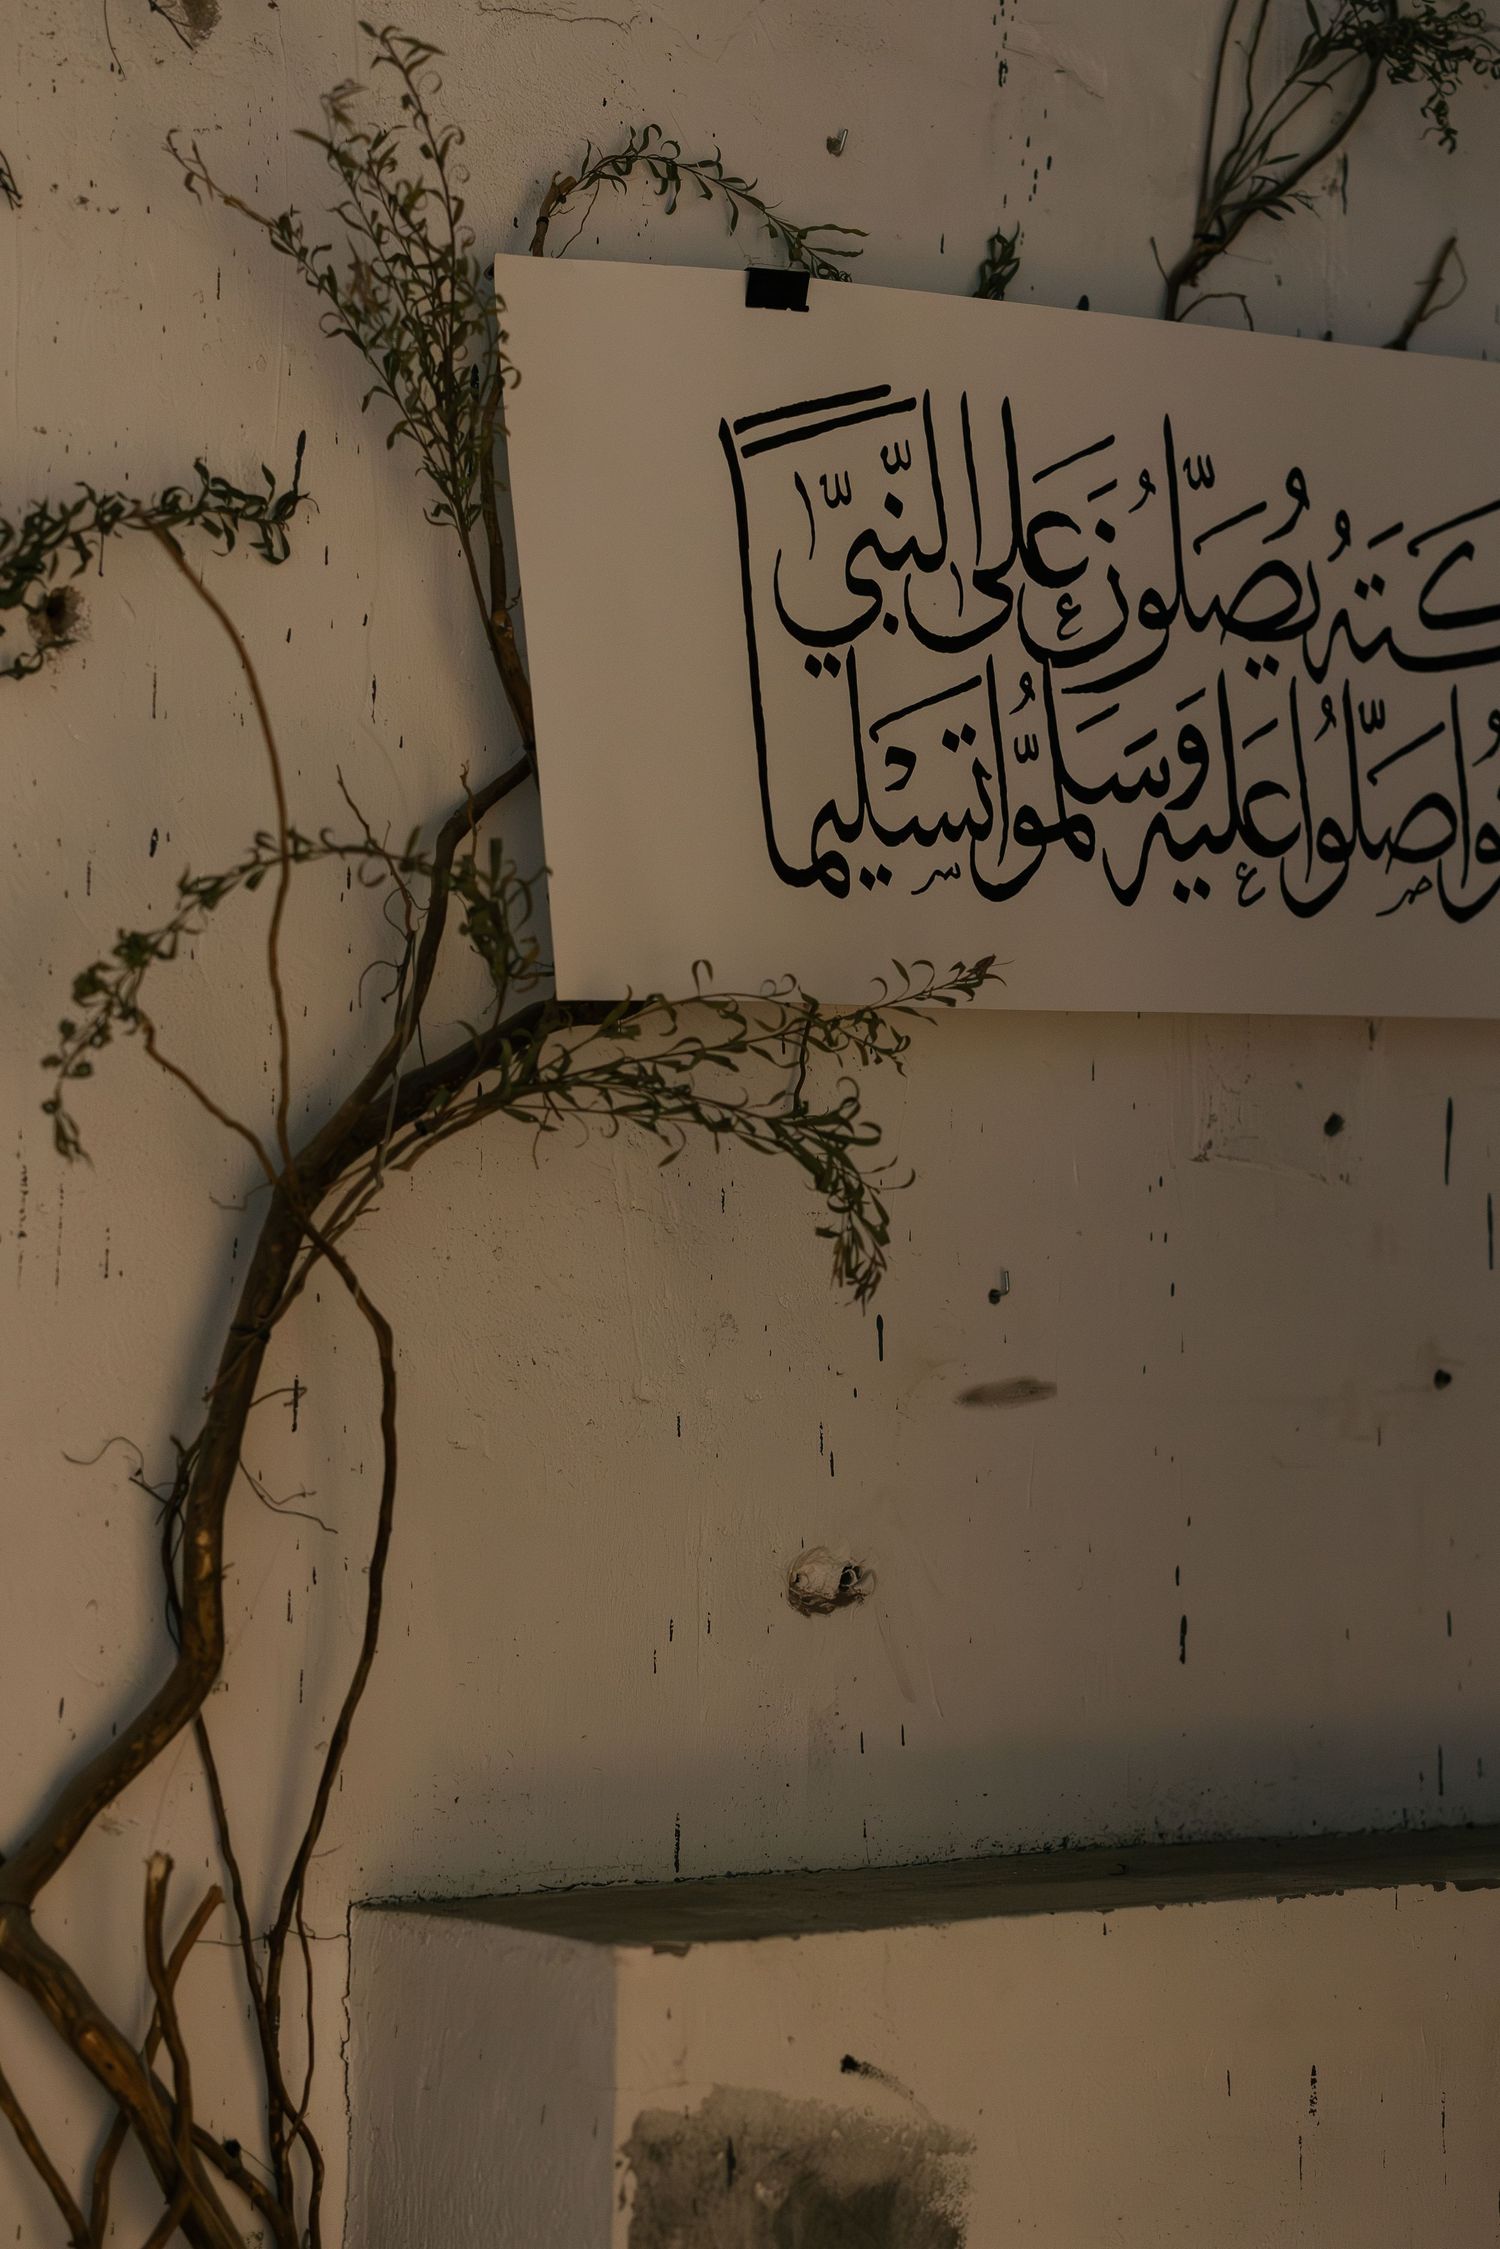 كَتَهُ يُصَلُّونَ عَلَى النَّبِيِّ
وا صَلُّوا عَلَيه وَسَلَّمُوّا تَسْليماً